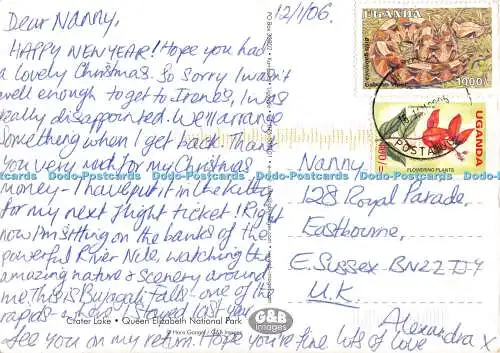 Dear Nanny,
12/1/06.
HAPPY NEW YEAR! Hope you had
a lovely Christmas. So sorry I wasn't
well enough to get to Irene's, I was
really disappointed. We'll arrange
something when I get back. Thank
you very much for my Christmas
money - I have put it in the kitty
for my next flight ticket! Right
now I'm sitting on the banks of the
powerful River Nile, watching the
amazing nature & scenery around
me. This is Bujagali Falls - one of the
rapids - where I stayed last year.
See you on my return. Hope you're fine, lots of love
Alexandra x
Nanny
128 Royal Parade,
Eastbourne,
E. Sussex BN22
U.K.
Crater Lake • Queen Elizabeth National Park
G&B
images
UGANDA
Gaboon Viper
1000/-
UGANDA
FLOWERING PLANTS
Dodo-Postcards Dodo-Postcards Dodo-Postcards Dodo-Postcards Dodo-Postcards